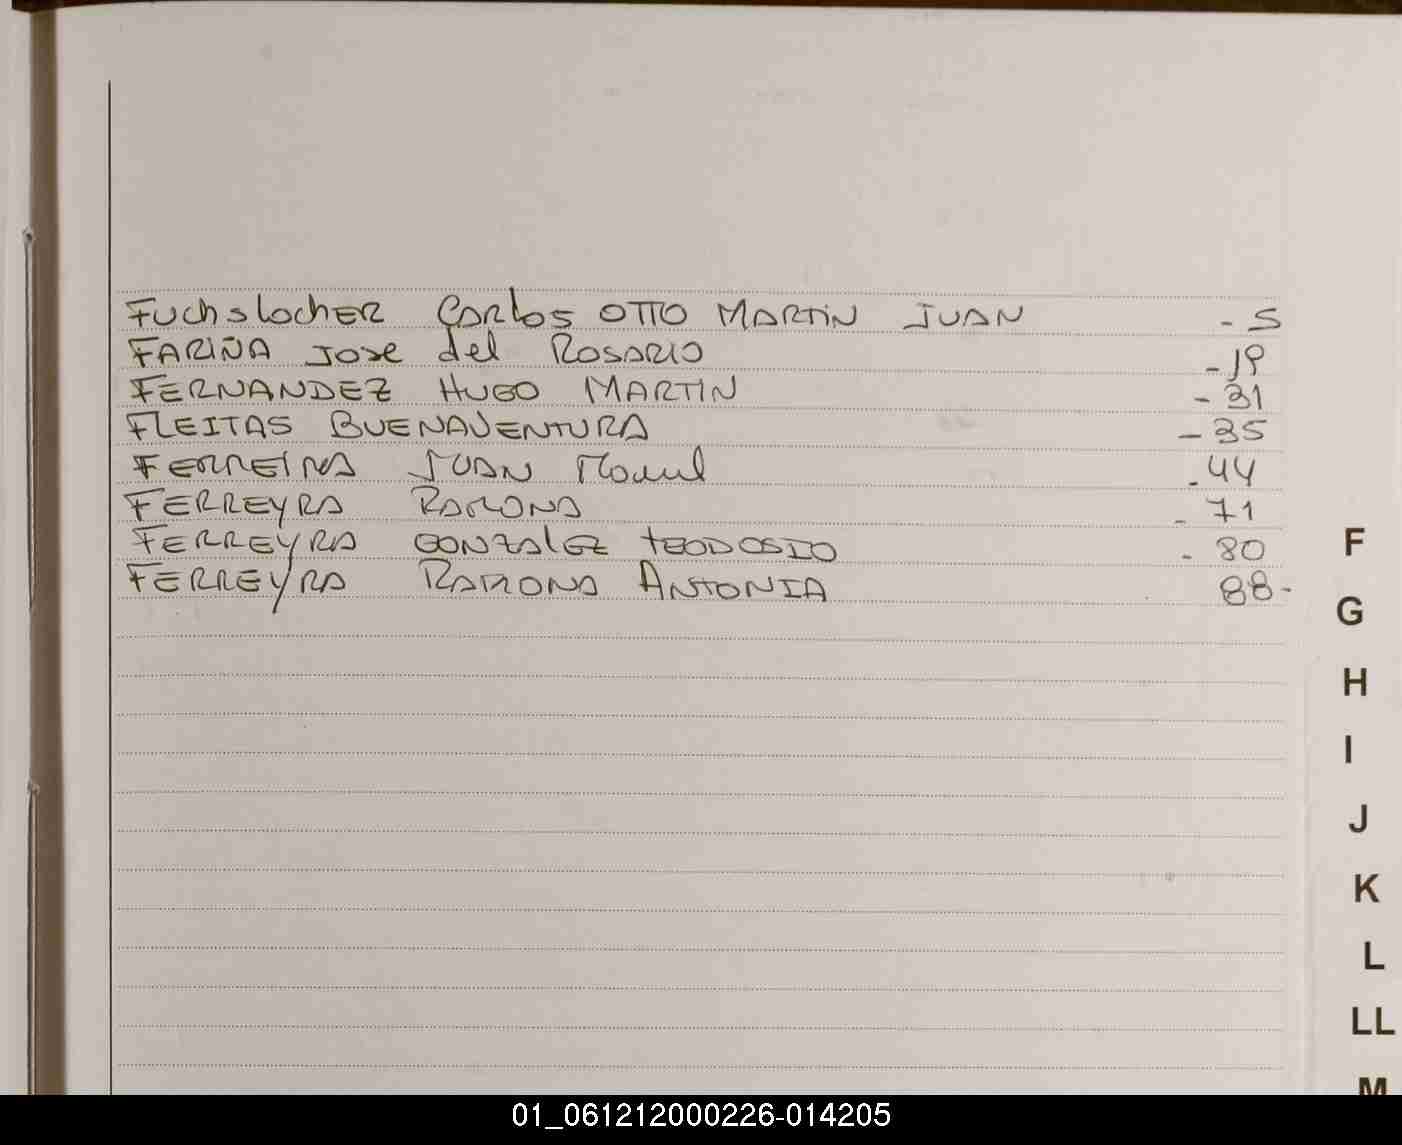 Fuchslocher Carlos OTTO MARTiN JUAN - 5
FARIÑA Jose del ROSARIO - 19
FERNANDEZ HUGO MARTIN - 31
FLEITAS BUENAVENTURA - 35
FERREIRA JUAN Manuel - 44
FERREYRA RAMONA - 71
FERREYRA GONZALEZ TEODOSIO - 80
FERREYRA RAMONA ANTONIA 88-
F
G
H
I
J
K
L
LL
M
01_061212000226-014205